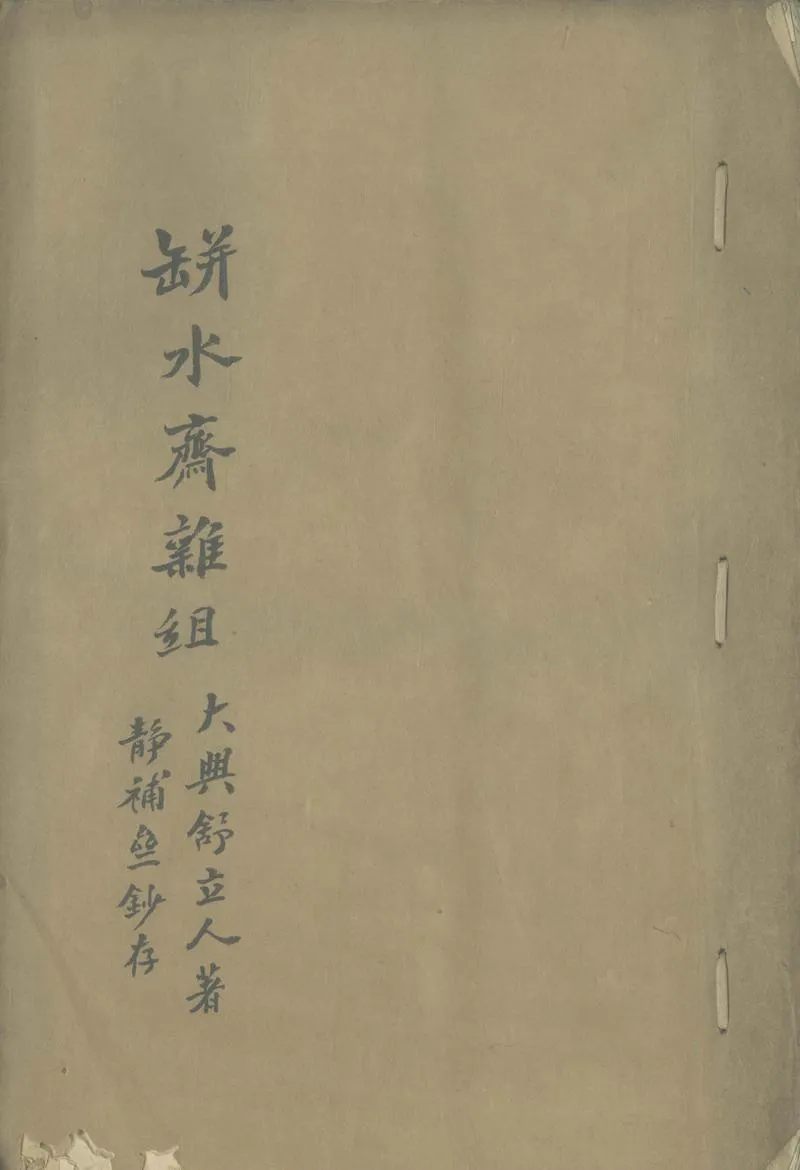 缾水齋雜組
大興舒立人著
靜補亝鈔存